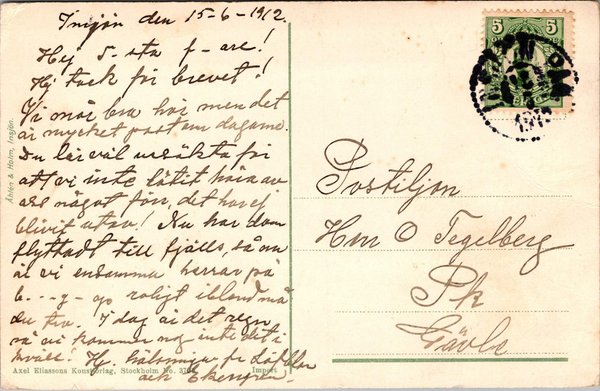 Insjön den 15-6-1912.
Hej 5-sta f-are!
Hj. tack för brevet!
Vi mår bra här men det
är mycket post om dagarna.
Du lär väl ursäkta för
att vi inte låtit höra av
oss något förr, det har ej
blivit utav! Nu har dom
flyttadt till fjälls, så nu
är vi ensamma herrar på
roligt ibland må
du tro. I dag är det regn
så vi kommer nog inte dit i
kväll! Hj. hälsningar fr
och
Åhlén & Holm, Insjön.
Axel Eliassons Konstförlag, Stockholm No.
Import
5
5
Postiljon
Hrr O Tegelberg
Pk
Gävle